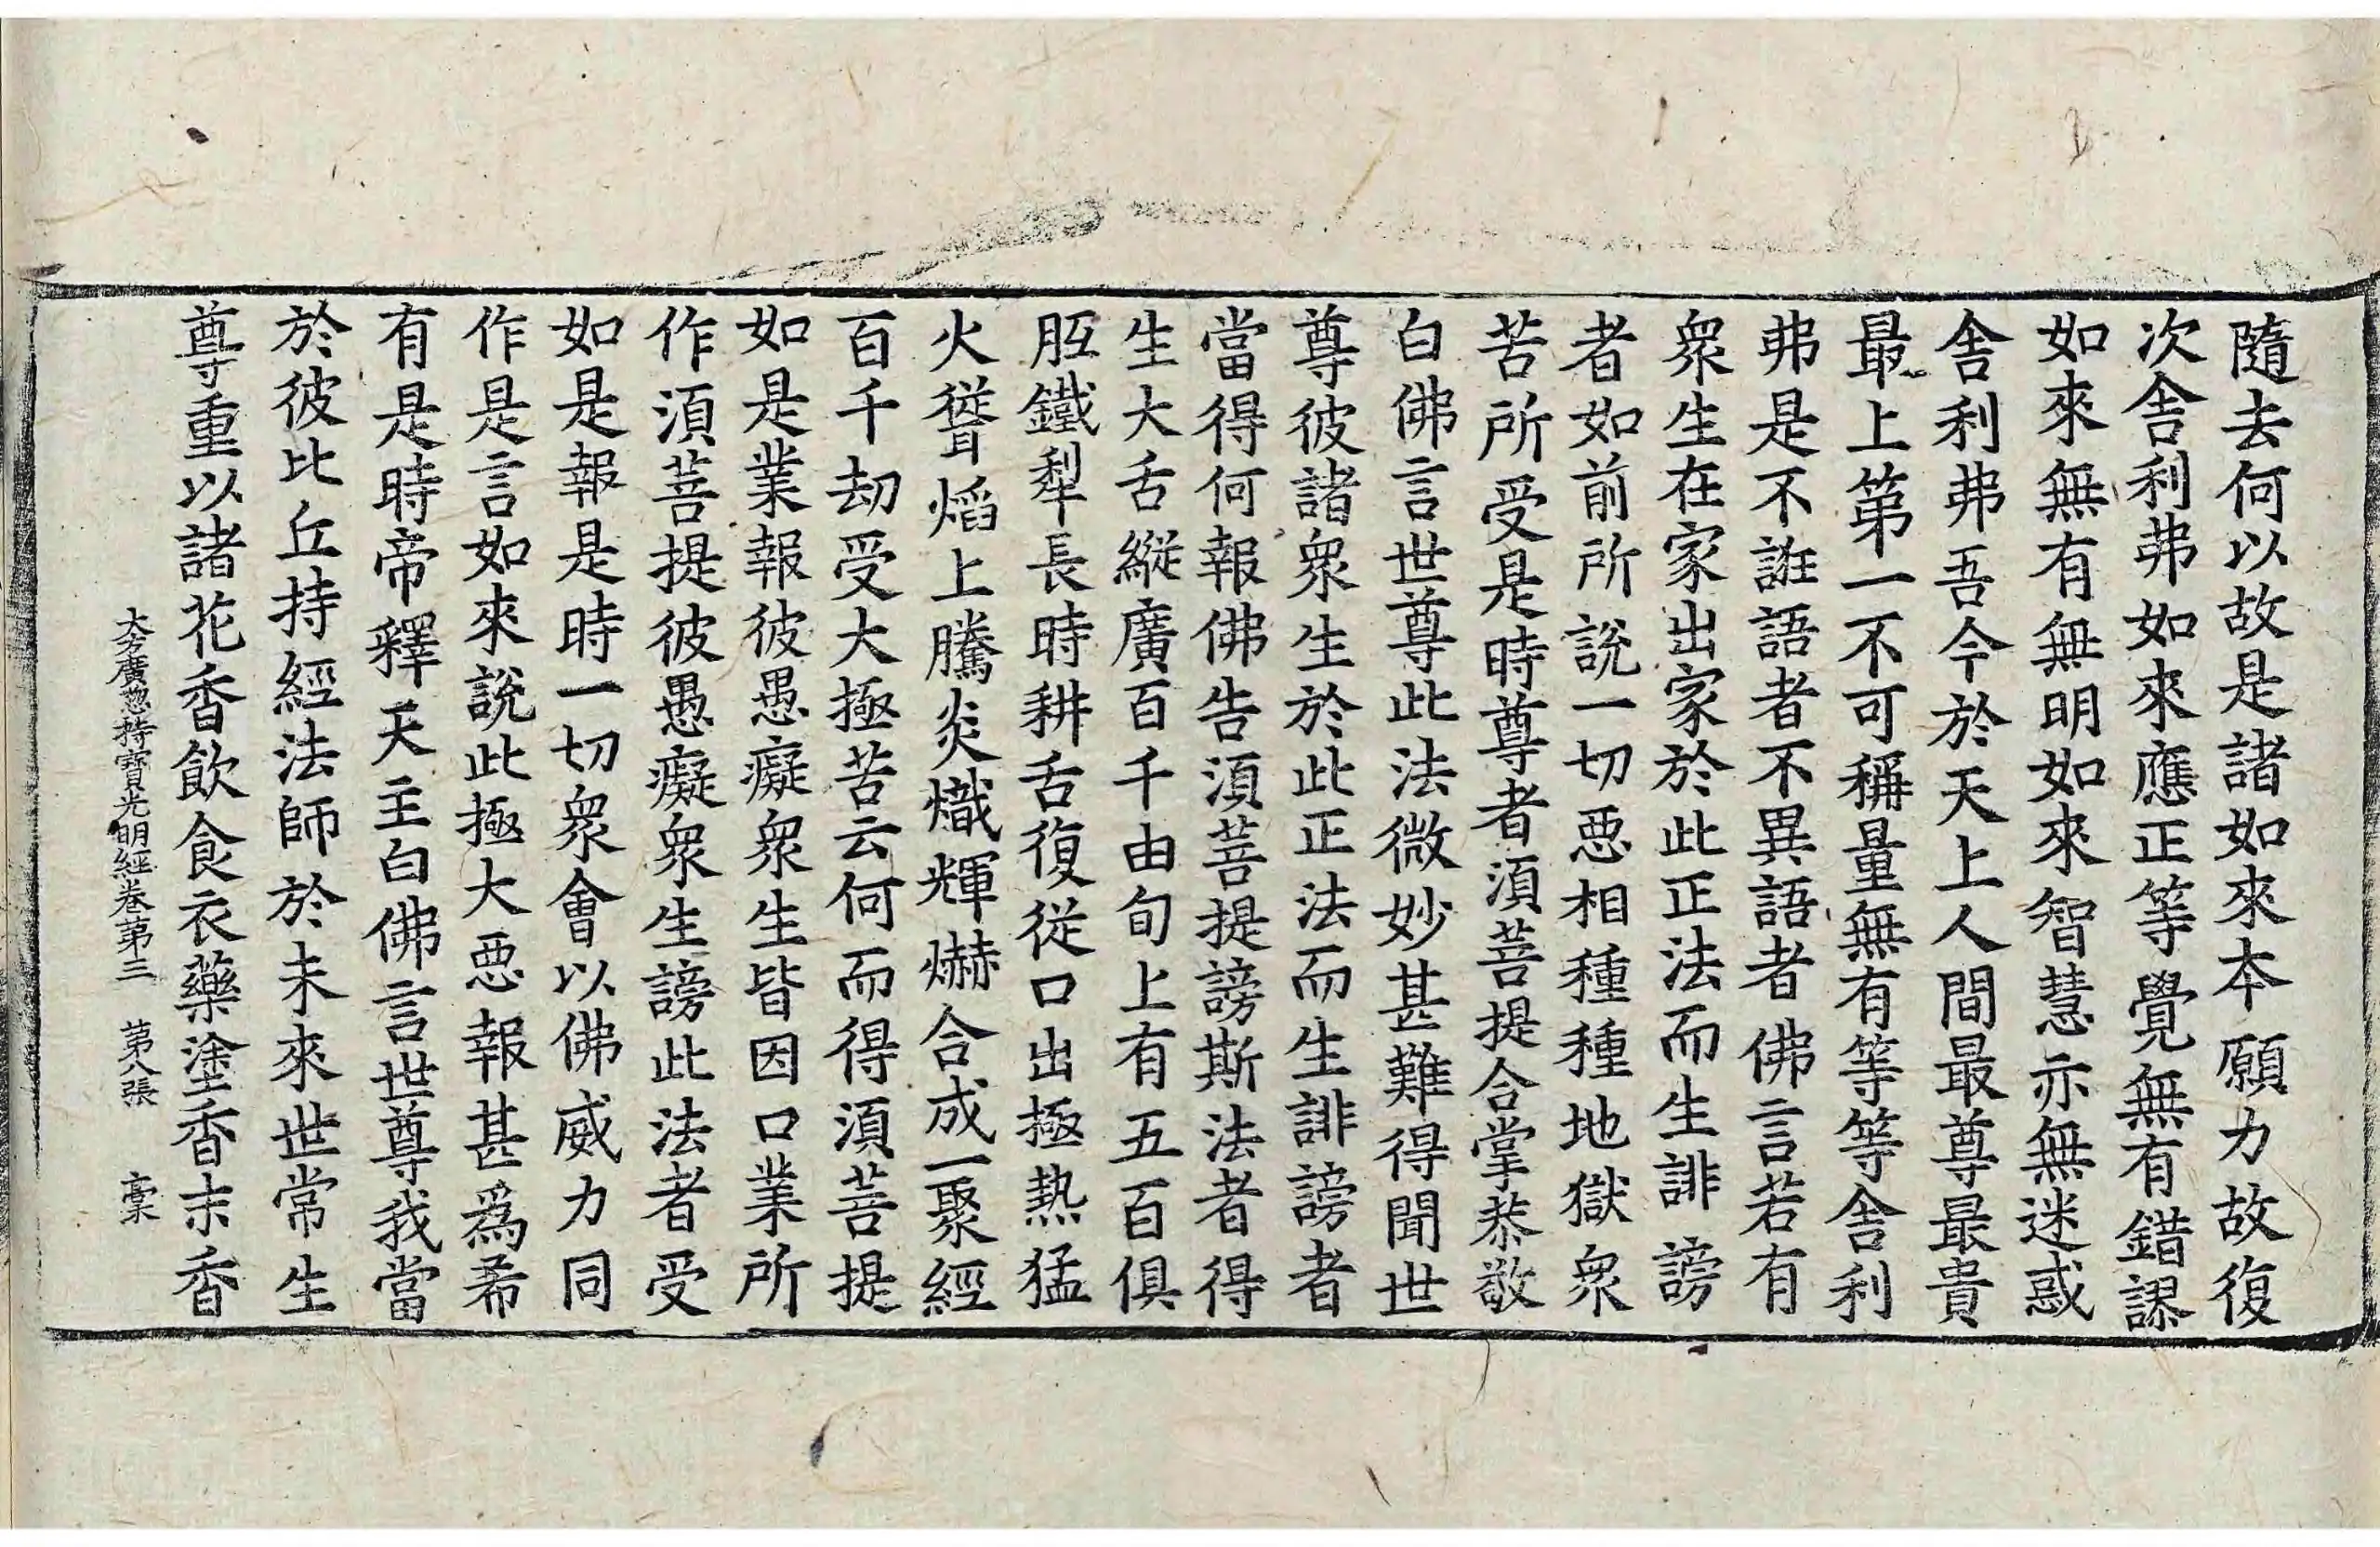 隨去何以故是諸如來本願力故復
次舎利弗如來應正等覺無有錯謬
如來無有無明如來智慧亦無迷惑
舎利弗吾今於天上人間最尊最貴
最上第一不可稱量無有等等舎利
弗是不誑語者不異語者佛言若有
衆生在家出家於此正法而生誹謗
者如前所說一切惡相種種地獄衆
苦所受是時尊者須菩提合掌恭敬
白佛言世尊此法微妙甚難得聞世
尊彼諸衆生於此正法而生誹謗者
當得何報佛告須菩提謗斯法者得
生大舌縱廣百千由旬上有五百俱
胝鐵犁長時耕舌復從口出極熱猛
火聳焰上騰炎熾輝爀合成一聚經
百千劫受大極苦云何而得須菩提
如是業報彼愚癡衆生皆因口業所
作須菩提彼愚癡衆生謗此法者受
如是報是時一切衆會以佛威力同
作是言如來說此極大惡報甚爲希
有是時帝釋天主白佛言世尊我當
於彼比丘持經法師於未來世常生
尊重以諸花香飲食衣藥塗香末香
大方廣惣持寶光明經卷第三 第八張 槀